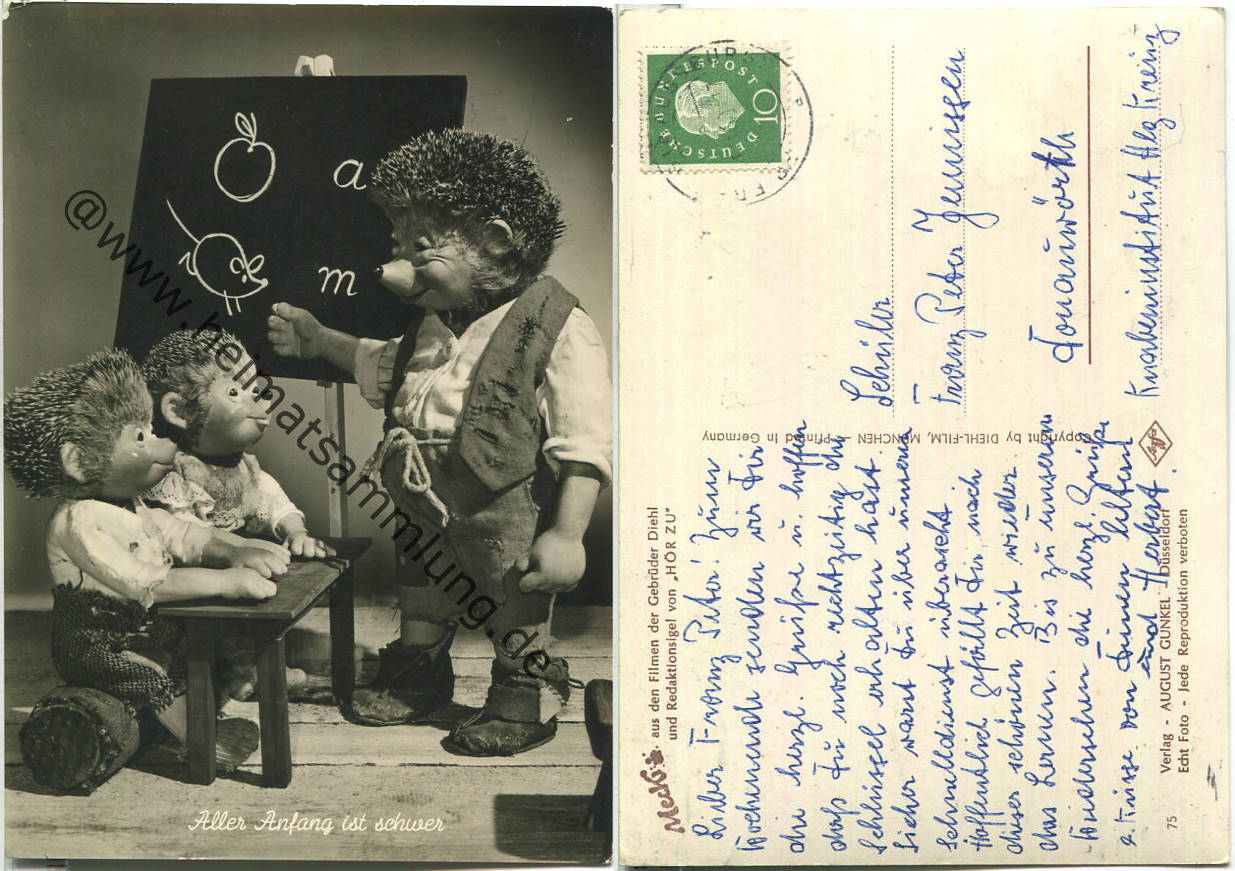 a
m
Aller Anfang ist schwer
@www.heimatsammlung.de
Mecki aus den Filmen der Gebrüder Diehl
und Redaktionsigel von „HÖR ZU"
Lieber Franz Peter! Zum
Wochenende senden wir Dir
die herzl. Grüße u. hoffen
daß Du noch rechtzeitig den
Schlüssel erhalten hast.
Sicher warst Du über unseren
Schnelldienst überrascht.
Hoffentlich gefällt Dir, nach
dieser schönen Zeit wieder
das Lernen. Bis zu unserem
Wiedersehen die herzl. Grüße
u. Küsse von Deinen Eltern
und Herbert.
Copyright by DIEHL-FILM, MÜNCHEN - Printed in Germany
Agfa
Verlag - AUGUST GUNKEL Düsseldorf
Echt Foto - Jede Reproduktion verboten
75
DEUTSCHE BUNDESPOST
10
Schüler
Franz Peter
Donauwörth
Knabeninstitut Hlg Kreuz